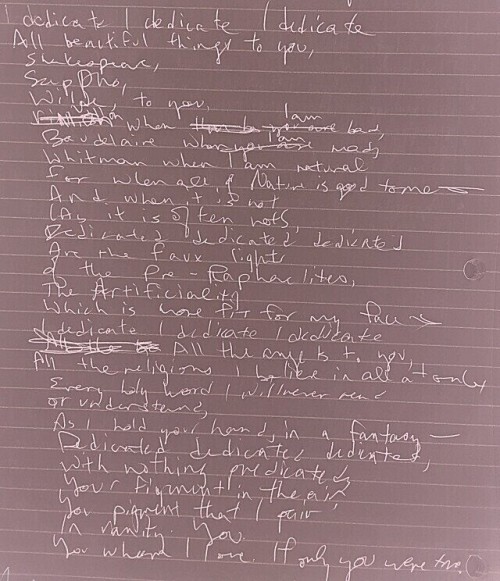 I dedicate I dedicate I dedicate
All beautiful things to you,
Shakespeare,
Sappho,
Wilde, to you,
when I am bad,
Baudelaire when I am mad,
Whitman when I am natural
For when all of Nature is good to me —
And when it is not
(As it is often not),
Dedicated, dedicated, dedicated
Are the faux lights
of the Pre-Raphaelites,
The Artificiality
Which is more fit for my face —
I dedicate I dedicate I dedicate
All the angels to you,
All the religions I believe in all at only
Every holy word I will never read
or understand,
As I hold your hand, in a fantasy —
Dedicated dedicated dedicated,
With nothing predicated,
Your figment in the air
You pigment that I pair
In vanity. You.
You whom I love. If only you were true.